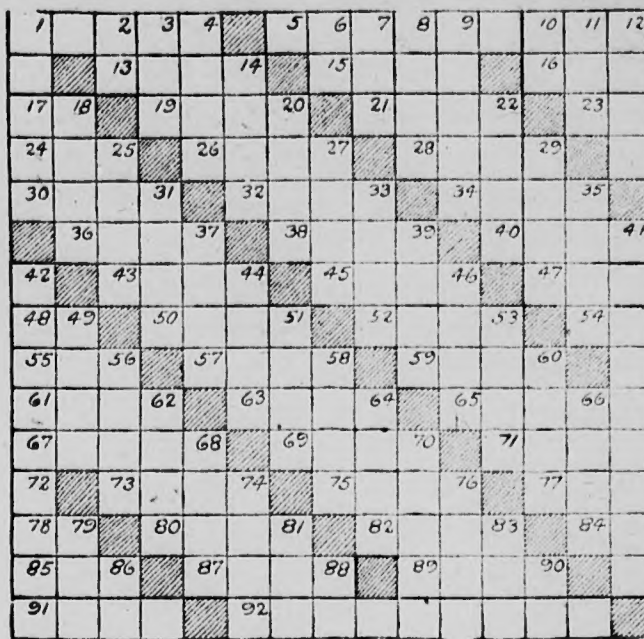 1 2 3 4 5 6 7 8 9 10 11 12
13 14 15 16
17 18 19 20 21 22 23
24 25 26 27 28 29
30 31 32 33 34 35
36 37 38 39 40 41
42 43 44 45 46 47
48 49 50 51 52 53 54
55 56 57 58 59 60
61 62 63 64 65 66
67 68 69 70 71
72 73 74 75 76 77
78 79 80 81 82 83 84
85 86 87 88 89 90
91 92